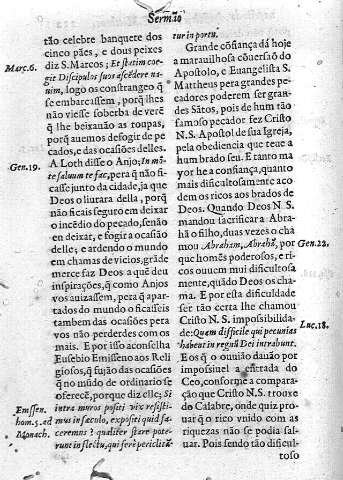 Sermão
tão celebre banquete dos
cinco pães, e dous peixes
Marc. 6.
diz S. Marcos; Et statim coe-
git Discipulos suos ascedere na-
uim, logo os constrangeo q̃
se embarcassem, porq̃ lhes
não viesse soberba de verẽ
q̃ lhe beixauão as roupas,
porq̃ auemos de fogir de pe-
cados, e das occasiões delles.
Gen. 19.
A Loth disse o Anjo; In mõ-
te saluum te fac, pera q̃ não fi-
casse junto da cidade, ja que
Deos o liurara della, porq̃
não ficais seguro em deixar
o incẽdio do peccado, senão
en deixar, e fogir a ocasião
delle; e ardendo o mundo
em chamas de vicios, grãde
merce faz Deos a quẽ deu
inspirações, q̃ como Anjos
vos auizassem, pera q̃ apar-
tados do mundo o ficasseis
tambem das ocasiões pera
vos não perderdes com os
mais. E por isso aconselha
Eusebio Emisseno aos Reli-
giosos, q̃ fujão das ocasiões
q̃ no mũdo de ordinario se
oferecẽ, porque diz elle; Si
Emssen.
hom. 5. ad
Monach.
intra muros positi vix resisti-
mus in sæculo, expositi quid fa-
ceremus? qualiter stare pote-
runt in flectu, qui ferè periclitã
tur in portu.
Grande cõfiança dá hoje
a marauilhosa cõuersaõ do
Apostolo, e Euangelista S.
Mattheus pera grandes pe-
cadores poderem ser gran-
des Sãtos, pois de hum tão
famoso pecador fez Cristo
N. S. Apostol de sua Igreja,
pela obediencia que teue a
hum brado seu. E tanto ma
yor he a confiança, quanto
mais dificultosamente aco
dem os ricos aos brados de
Deos. Quando Deos N. S.
mandou sacrificar a Abra-
hã o filho, duas vezes o cha
Gen. 22.
mou Abraham, Abrahã, por
que homẽs poderosos, e ri-
cos ouuem mui dificultosa
mente, quãdo Deos os cha-
ma. E por esta dificuldade
ser tão certa lhe chamou
Cristo N. S. impossibilida-
Luc. 18.
de: Quem difficile qui pecunias
habent in regnũ Dei intrabunt.
E os q̃ o ouuião dauão por
impossiuel a entrada do
Ceo, conforme a compara-
ção que Cristo N. S. trouxe
do Calabre, onde quiz pro-
uar q̃ o rico vnido com as
riquezas não se podia sal-
uar. Pois sendo tão dificul-
toso